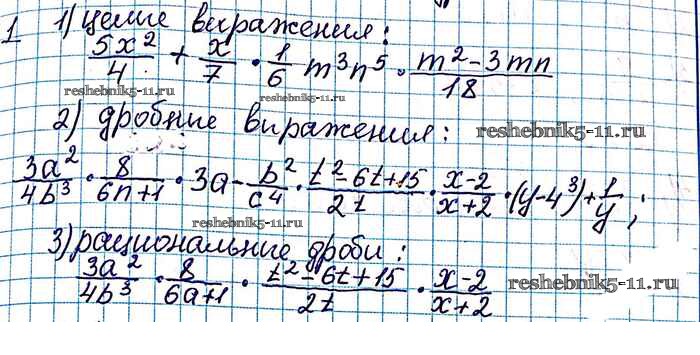 1 1) целые выражения:
5x²/4 + x/7 · 1/6 m³n⁵ · m²-3mn/18
reshebnik5-11.ru reshebnik5-11.ru
2) дробные выражения: reshebnik5-11.ru
3a²/4b³ · 8/6n+1 · 3a - b²/c⁴ · t²-6t+15/2t · x-2/x+2 · (y-4³)+1/y;
reshebnik5-11.ru
3) рациональные дроби:
3a²/4b³ · 8/6a+1 · t²-6t+15/2t · x-2/x+2 reshebnik5-11.ru